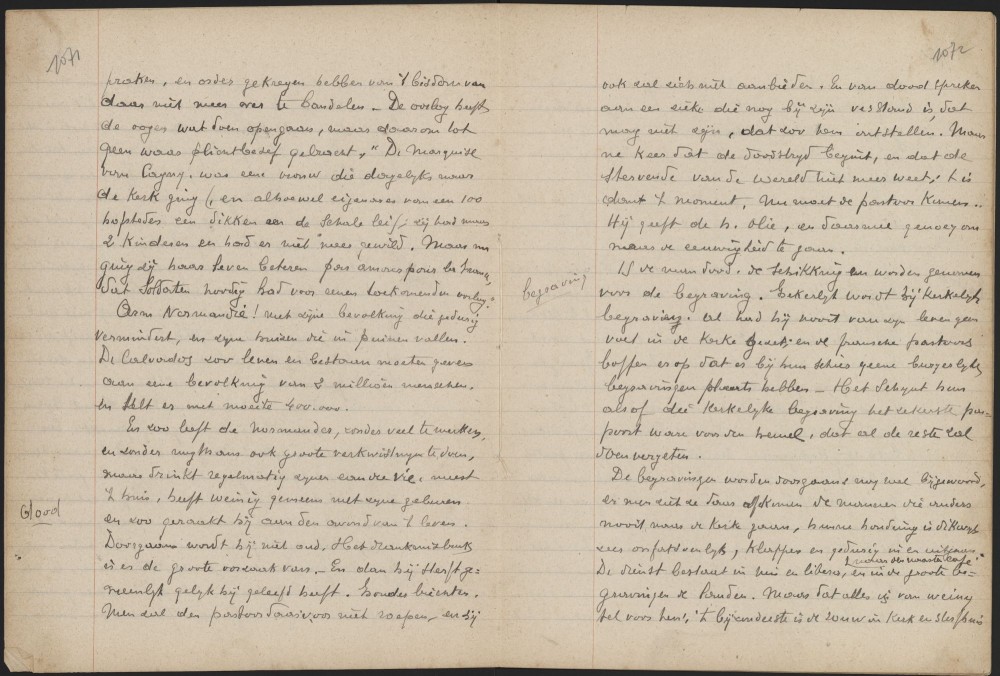 1071
praken, en ordes gekregen hebben van 't bisdom van
daar niet meer over te handelen – De oorlog heeft
de oogen wat doen opengaan, maar daarom tot
geen waar plichtbesef gebracht, " De Marquise
van Cagny. was eene vrouw die dagelyks naar
de kerk ging (, en alhoewel eigenares van een 100
hopsteden een dikken in de schale lei), zy had maar
2 kinderen en had er niet meer gewild. Maar nu
ging zy haar leven beteren pas amour pour la France,
dat soldaten noodig had voor eenen toekomenden oorlog."
Arm Normandie! met zyne bevolking die gedurig
vermindert, en zyne huizen die in puinen vallen.
De Calvados zou leven en bestaan moeten geven
aan eene bevolking van 2 millioen menschen.
en telt er met moeite 400.000.
En zoo leeft de Normander, zonder veel te werken,
en zonder nogthans ook groote verkwistingen te doen,
maar drinkt regelmatig zyner eau de vie. meest
t'huis, heeft weinig gemeens met zyne geburen
en zoo geraakt hy aan den avond van 't leven.
Dood
Doorgaans wordt hy niet oud. Het drankmisbruik
is er de groote oorzaak van. – En dan hy sterft ge=
meenlyk gelyk hy geleefd heeft. Zonder biechten.
Men zal den pastoor daarvoor niet roepen, en hy
1072
ook zal zich niet aanbieden. En van dood spreken
aan een zieke die nog by zyn verstand is, dat
mag niet zyn, dat zou hem ontstellen. Maar
ne keer dat de doodstryd begint, en dat de
stervende van de wereld niet meer weet, 't is
dan 't moment. Nu moet de pastoor komen..
Hy geeft de h. Olie, en daarmee genoeg om
naar de eeuwigheid te gaan.
begraving
Is de man dood. de schikkingen worden genomen
voor de begraving. Eekerlyk wordt hy kerkelyk
begraven. Al had hy nooit van zyn leven geen
voet in de kerke gezet. en de fransche pastoors
boffen er op dat er by hun schier geene burgerlyke
begravingen plaats hebben – Het schynt hun
alsof die kerkelyke begraving het zekerste pas=
poort ware voor den hemel, dat al de reste zal
doen vergeten.
De begravingen worden doorgaans nog wel bygewoond,
er men ziet ze daar afkomen de mannen die anders
nooit naar de kerk gaan, hunne houding is dikwyls
zeer onfatsoenlyk, klappen en gedurig in en uitgaan
naar de naaste café.
De dienst bestaat in mis en libera, en in de groote be=
gravingen de lauden. Maar dat alles is van weinig
tel voor hen, 't byzonderste is de rouw in kerk en sterfhuis